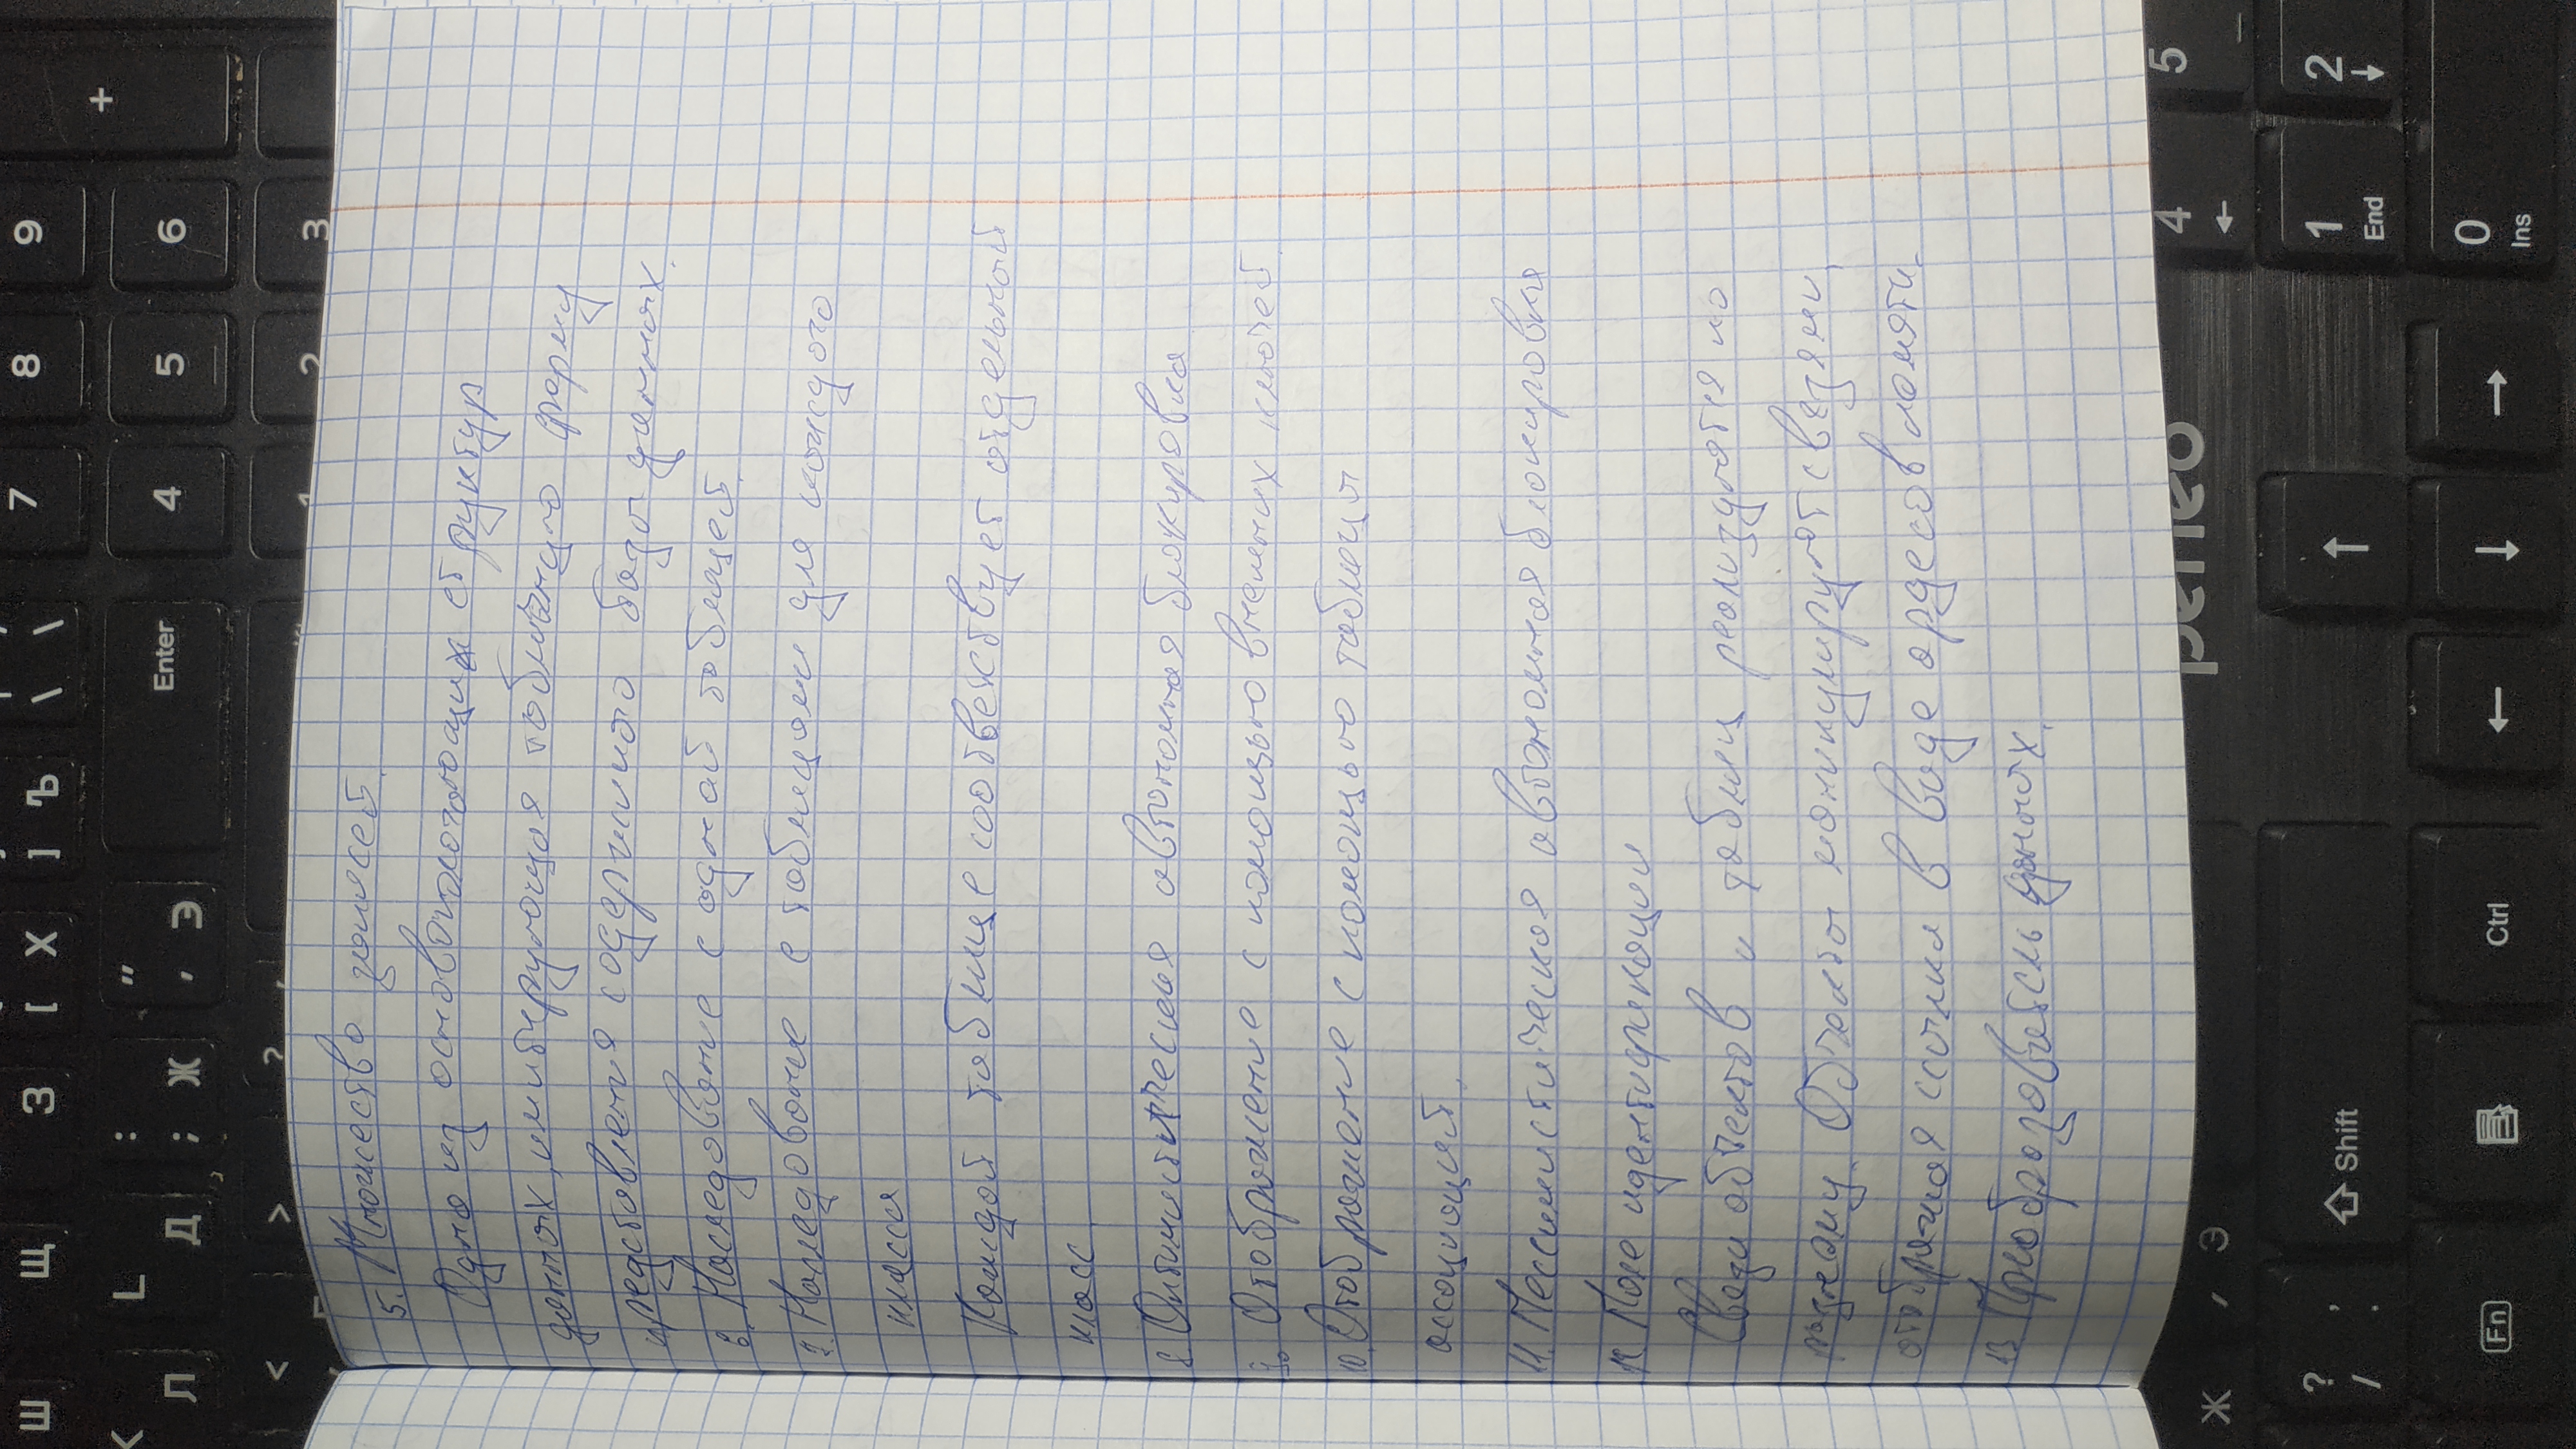 Ш Щ З [ Х ] Ъ \ \ 7 8 9
K L : " +
Л Д ; Ж ' Э Enter 4 5 6
< > ? 1 2 3
5. Множество записей.
Одна из основополагающих структур
данных, имитирующая табличную форму
представления содержимого базы данных.
6. Наследование с одной таблицей.
7. Наследование с таблицами для каждого
класса
Каждой таблице соответствует отдельный
класс.
8. Оптимистическая автономная блокировка
9. Отображение с помощью внешних ключей.
10. Отображение с помощью таблицы
ассоциаций.
11. Пессимистическая автономная блокировка
12. Поле идентификации
Связи объектов и таблиц реализуются по
разному. Объекты манипулируют связями,
отображая ссылки в виде ардесов памяти.
13 Преобразователь данных.
perfeo 4 5
Ж , Э ← _
? , / . Shift ↑ 1 End 2 ↓
Fn Ctrl ← ↓ → 0 Ins